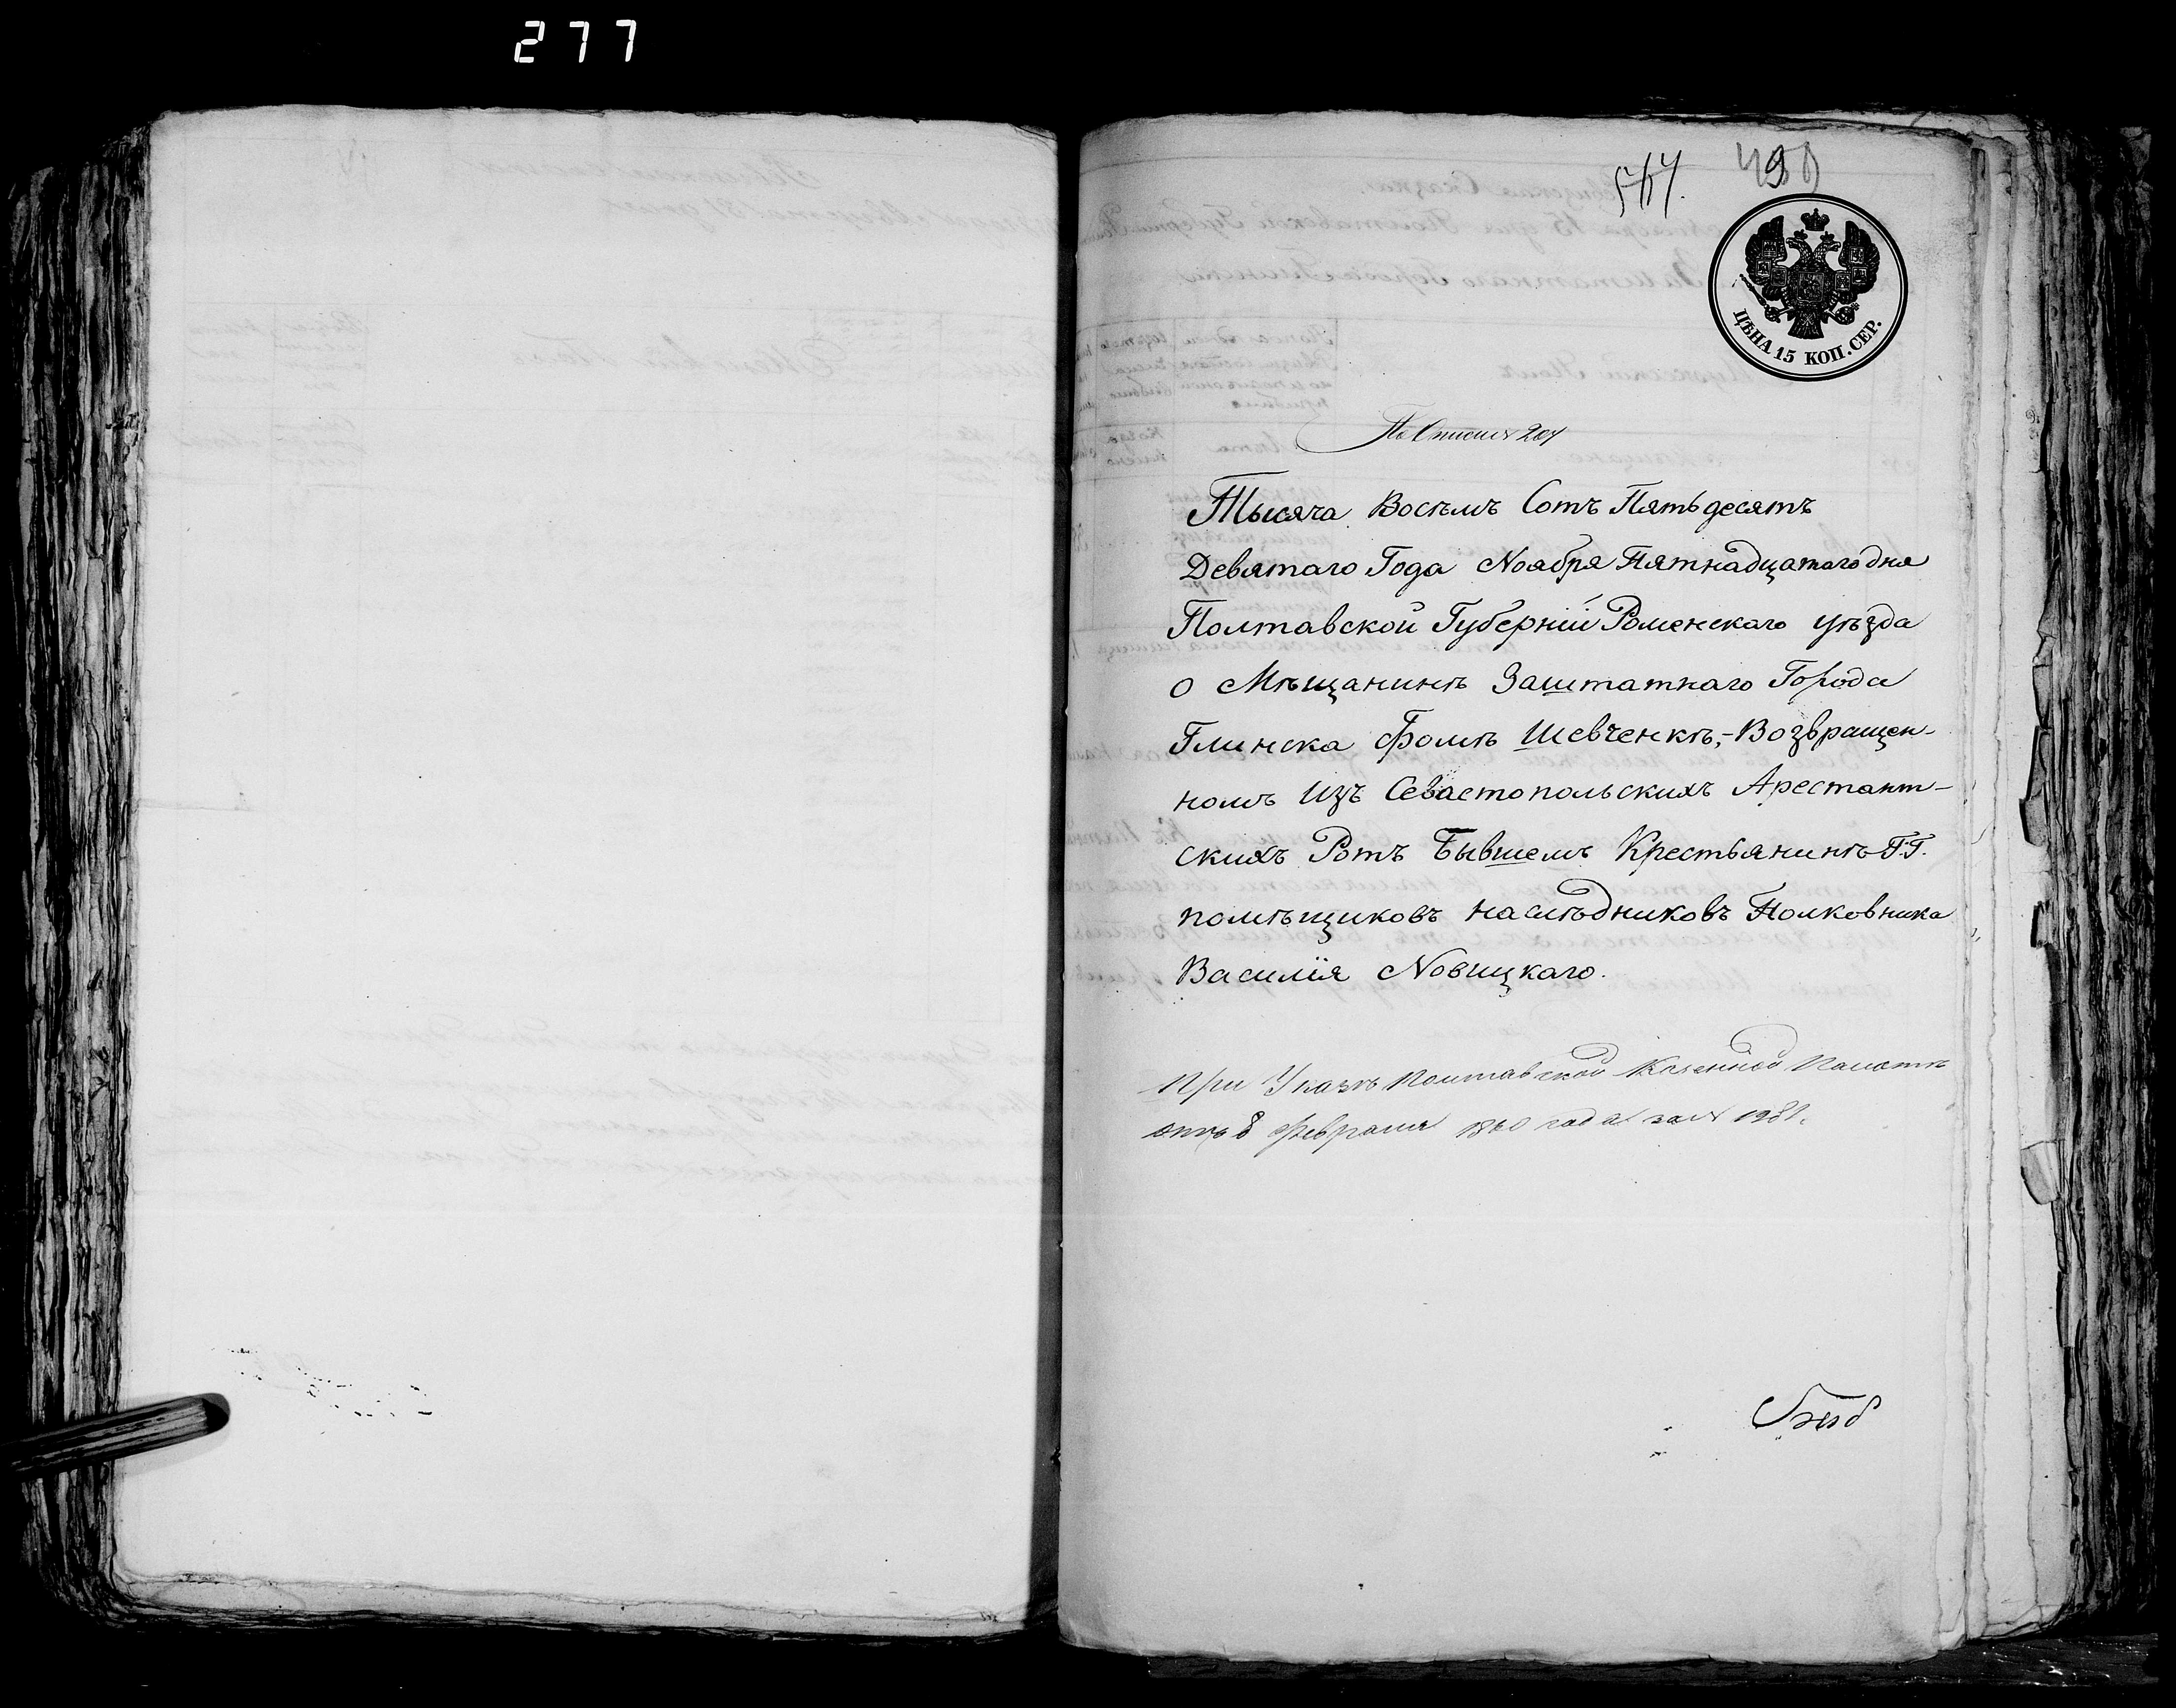 277
490
ЦѢНА 15 КОП. СЕР.
По Описи № 204
Тысяча Восѣмъ Сотъ Пятьдесятъ
Девятаго Года Ноября Пятнадцатаго дня
Полтавской Губерніи Роменскаго уѣзда
о Мѣщанинѣ Заштатнаго Города
Глинска Фомѣ Шевченкѣ,-Возвращен-
номъ Изъ Севастопольскихъ Арестант-
скихъ Ротъ Бывшемъ Крестьянинѣ Г.Г.
помѣщиковъ наслѣдниковъ Полковника
Василія Новицкаго.
При Указѣ Полтавской Казенной Палаты
отъ 8 февраля 1860 года за № 1981.